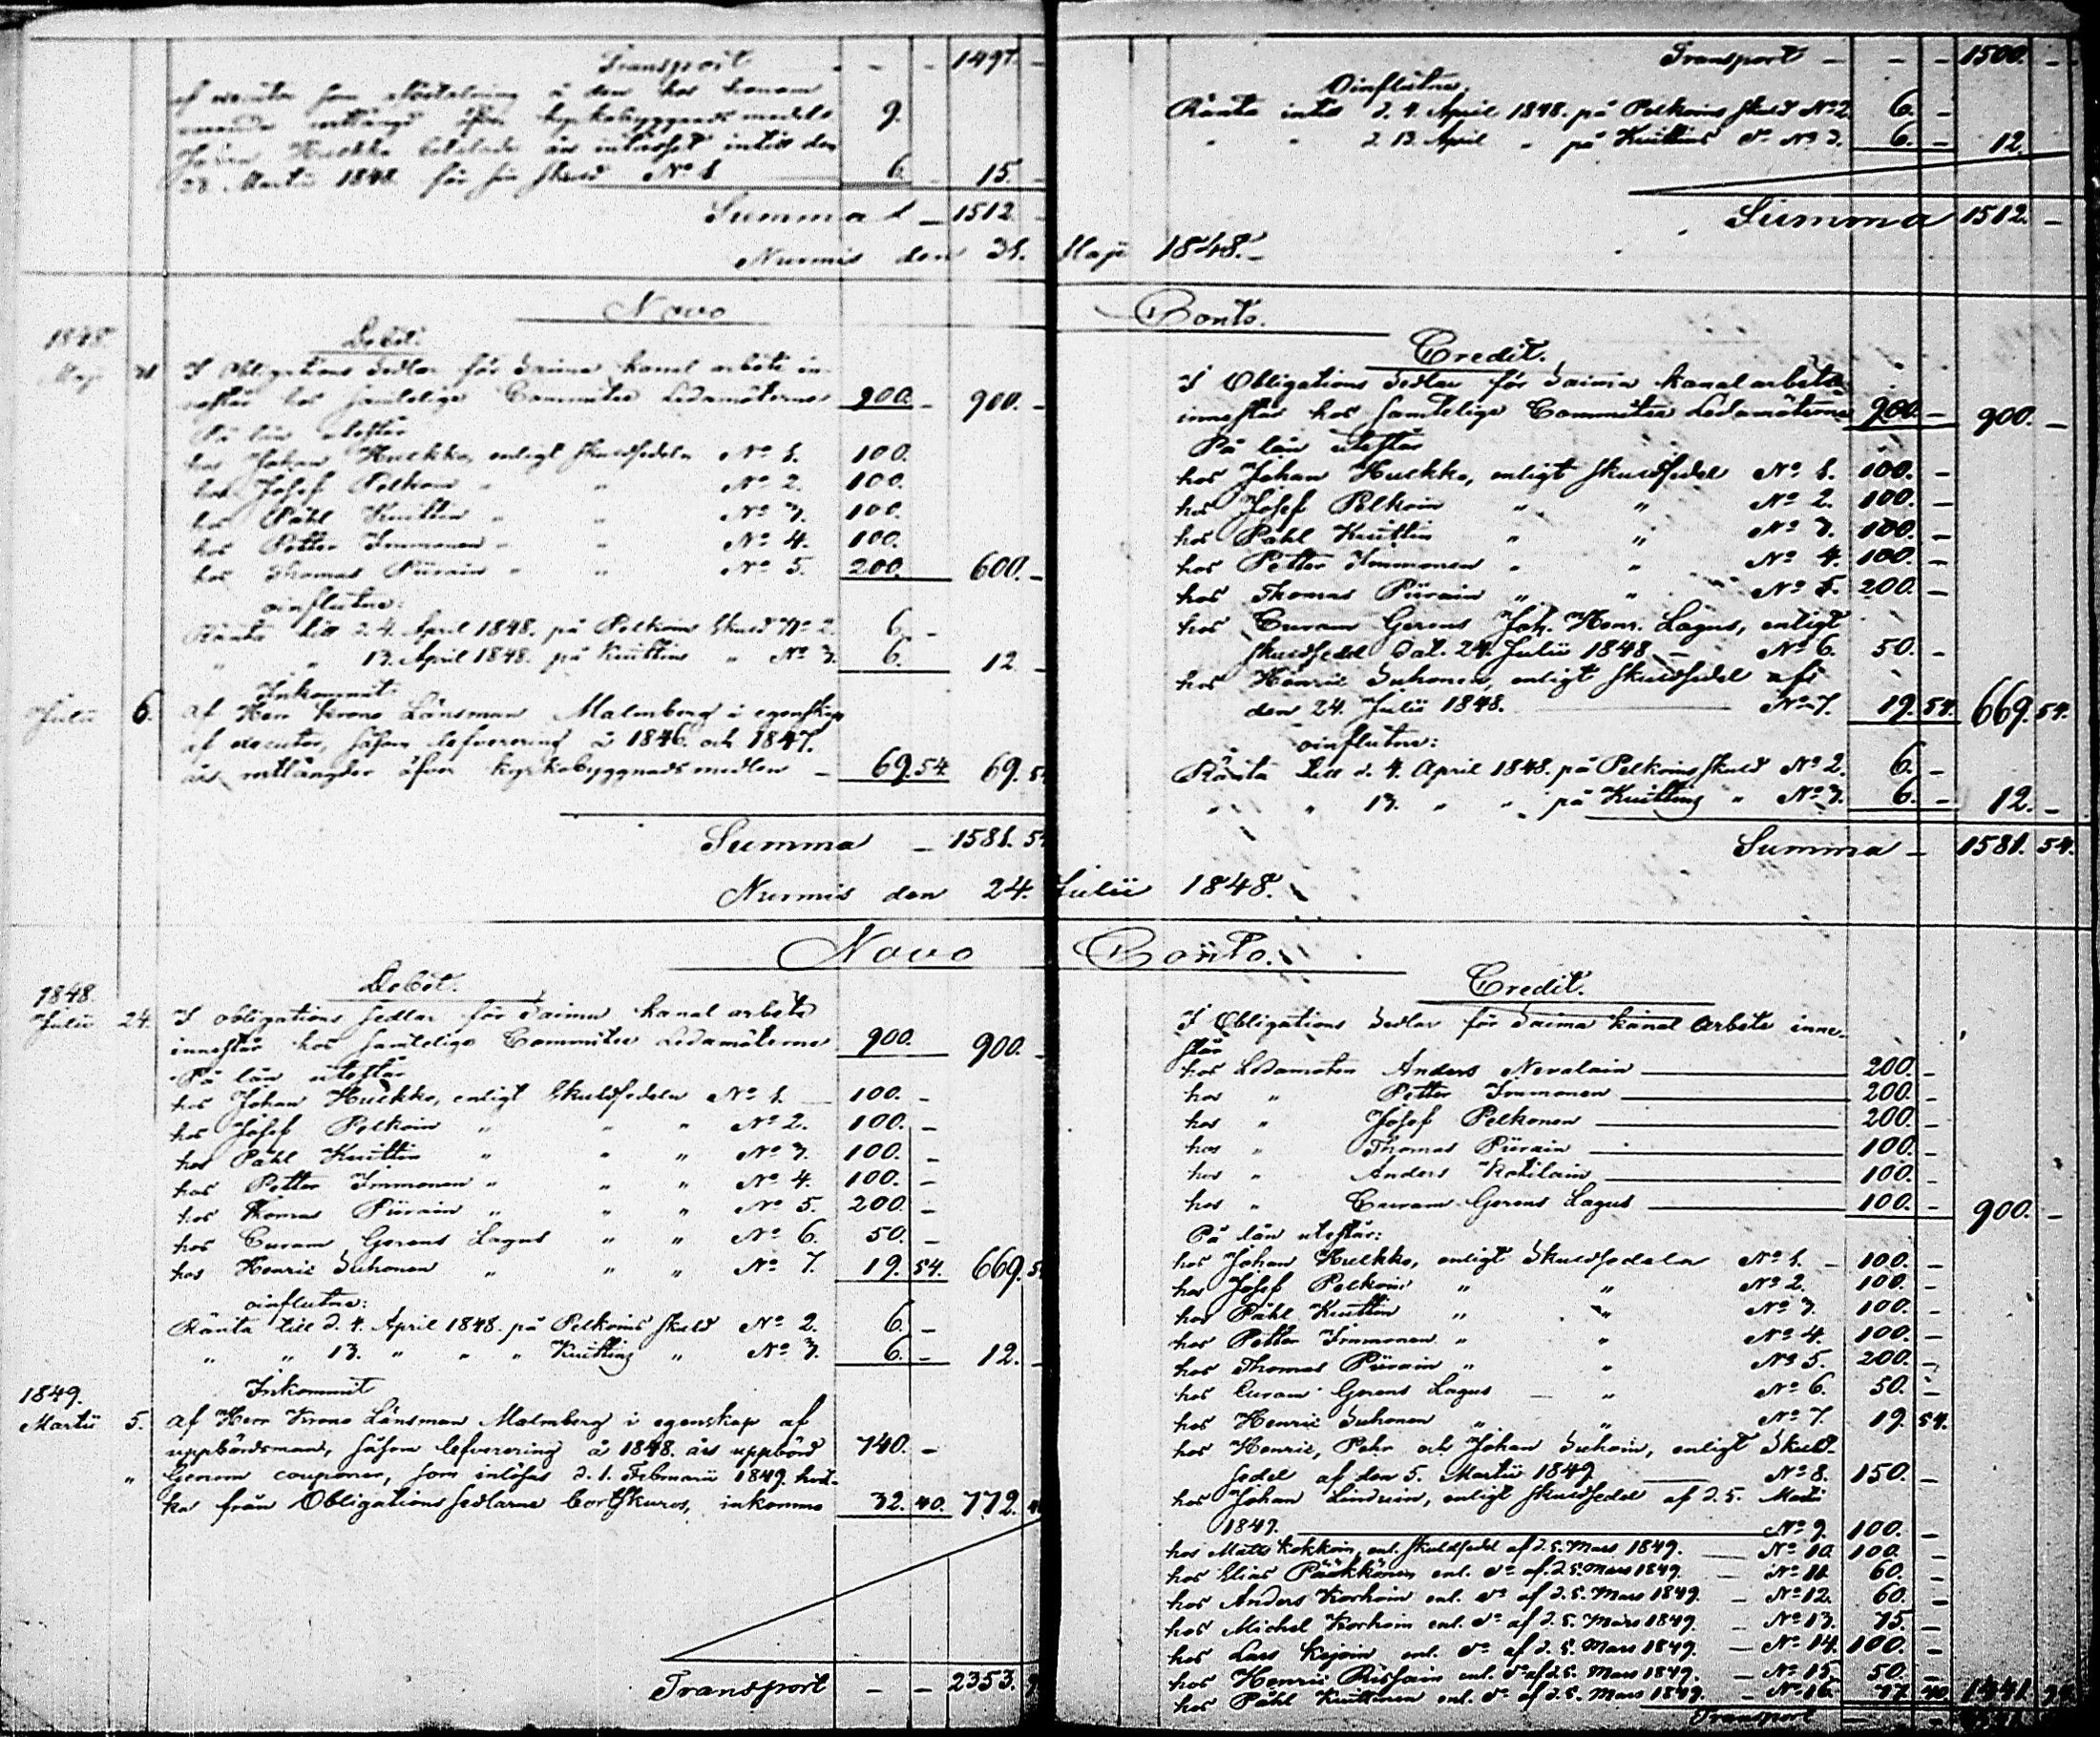 Transport - - 1497. -
af executor som afbetalning å den hos honom
varande restlängd öfver kyrkobyggnads medel 9.
Johan Huckko betalade års intresset intill den
28 Martii 1848 för sin skuld No 1 6. 15. -
Summa - 1512. -
Nurmis den 31. Maji 1848. -
Novo
1848 Debet.
Maji 31 I Obligations Sedlar för Saima kanal arbete in-
nestår hos samtelige Committee Ledamöterne 900. - 900. -
På lån utestår
hos Johan Huckko, enligt skuldsedeln No 1. 100.
hos Josef Pelkoin " " No 2. 100.
hos Påhl Kuittin " " No 3. 100.
hos Petter Immonen " " No 4. 100.
hos Thomas Piirain " " No 5. 200. 600. -
oinflutne:
Ränta till d. 4. April 1848. på Pelkoins skuld No 2. 6. -
" " 13. April 1848. på Kuittins " No 3. 6. 12. -
Inkommit:
Julii 6. af Herr Krono Länsman Malmberg i egenskap
af executor, såsom lefverering å 1846. och 1847.
års restlängder öfver kyrkobyggnads medlen - 69. 54. 69. 54
Summa - 1581. 54
Nurmis den 24. Julii 1848.
Novo
1848. Debet.
Julii 24. I obligations sedlar för Saima kanal arbete
innestår hos samtelige Committee Ledamöterne 900. 900. -
På lån utestår
hos Johan Huckko, enligt Skuldsedeln No 1. - 100. -
hos Josef Pelkoin " " " No 2. 100. -
hos Påhl Kuittin " " " No 3. 100. -
hos Petter Immonen " " " No 4. 100. -
hos Thomas Piirain " " " No 5. 200. -
hos Curam Gerens Lagus " " No 6. 50. -
hos Henric Suhonen " " " No 7. 19. 54. 669. 54
oinflutne:
Ränta till d. 4. April 1848. på Pelkoins skuld No 2. 6. -
" " 13. " " " Kuitting " No 3. 6. - 12. -
1849. Inkommit
Martii 5. af Herr Krono Länsman Malmberg i egenskap af
uppbördsman, såsom lefverering å 1848. års uppbörd 740. -
" Genom couponer, som inlöses d. 1. Februarii 1849. hvil-
ka från Obligations sedlarne bortskuros, inkommo 32. 40. 772. 40
Transport - - 2353.
Transport - - - 1500. -
Oinflutne.
Ränta intill d. 4. April 1848. på Pelkoins skuld No 2. 6. -
" " d. 13. April " på Kuittins do No 3. 6. - 12.
Summa 1512. -
Conto.
Credit.
I Obligations Sedlar för Saima kanal arbete
innestår hos samtelige Committee Ledamöterne 900. - 900. -
På lån utestår
hos Johan Huckko, enligt skuldsedel No 1. 100. -
hos Josef Pelkoin " " No 2. 100. -
hos Påhl Kuittin " " No 3. 100. -
hos Petter Immonen " " No 4. 100. -
hos Thomas Piirain " " No 5. 200. -
hos Curam Gerens Joh. Henr. Lagus, enligt
skuldsedel dat. 24. Julii 1848 - No 6. 50. -
hos Henric Suhonen, enligt skuldsedel af
den 24. Julii 1848. No 7. 19. 54. 669. 54.
oinflutne:
Ränta till d. 4. April 1848. på Pelkoins skuld No 2. 6. -
" " 13. " " på Kuitting " No 3. 6. - 12. -
Summa - 1581. 54.
Conto.
Credit.
I Obligations Sedlar för Saima kanal Arbete inne-
står
hos Ledamoten Anders Nevalain 200. -
hos " Petter Immonen 200. -
hos " Josef Pelkonen 200. -
hos " Thomas Piirain 100. -
hos " Anders Kotilain 100. -
hos " Curam Gerens Lagus 100. - 900. -
På lån utestår:
hos Johan Huckko, enligt Skuldsedeln No 1. - 100. -
hos Josef Pelkoin " " No 2. 100. -
hos Påhl Kuittin " " No 3. 100. -
hos Petter Immonen " " No 4. 100. -
hos Thomas Piirain " " No 5. 200. -
hos Curam Gerens Lagus - " No 6. 50. -
hos Henric Suhonen " " No 7. 19. 54.
hos Henric, Pehr och Johan Suhoin, enligt Skuld-
sedel af den 5. Martii 1849 No 8. 150. -
hos Johan Lindrein, enligt skuldsedel af d. 5. Martii
1849. No 9. 100. -
hos Matts Kokkoin, enl. skuldsedel af d. 5. Mars 1849. - No 10. 100. -
hos Elias Pääkkönen enl. do af d. 5. Mars 1849. - No 11. 60. -
hos Anders Korhoin enl. do af d. 5. Mars 1849. - No 12. 60. -
hos Michel Korhoin enl. do af d. 5. Mars 1849. - No 13. 75. -
hos Lars Kajoin enl. do af d. 5. Mars 1849. - No 14. 100. -
hos Henric Rissain enl. do af d. 5. Mars 1849. - No 15. 50. -
hos Påhl Kuittinen enl. do af d. 5. Mars 1849. - No 16. 77. 40. 1441. 94.
Transport - -